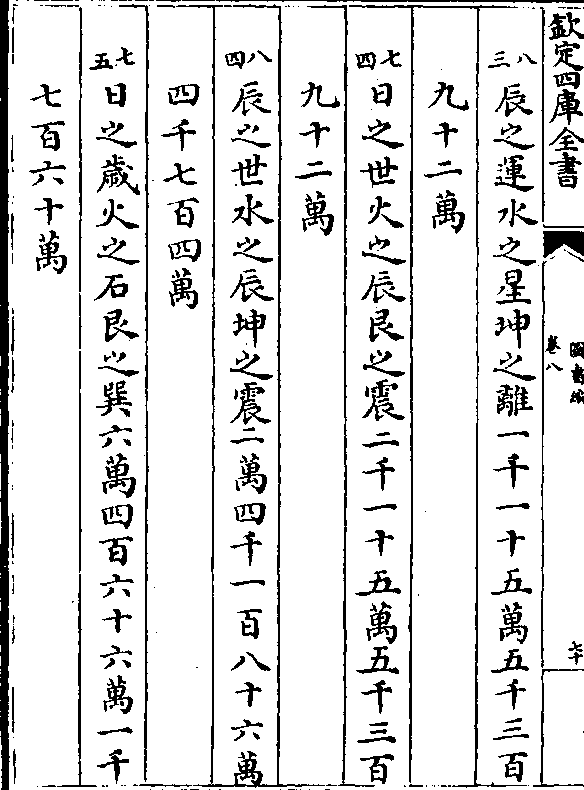 欽定四庫全書
圖書編
卷八
七十
八三 辰之運水之星坤之離一千一十五萬五千三百
九十二萬
七四 日之世火之辰艮之震二千一十五萬五千三百
九十二萬
八四 辰之世水之辰坤之震二萬四千一百八十六萬
四千七百四萬
七五 日之歲火之石艮之巽六萬四百六十六萬一千
七百六十萬